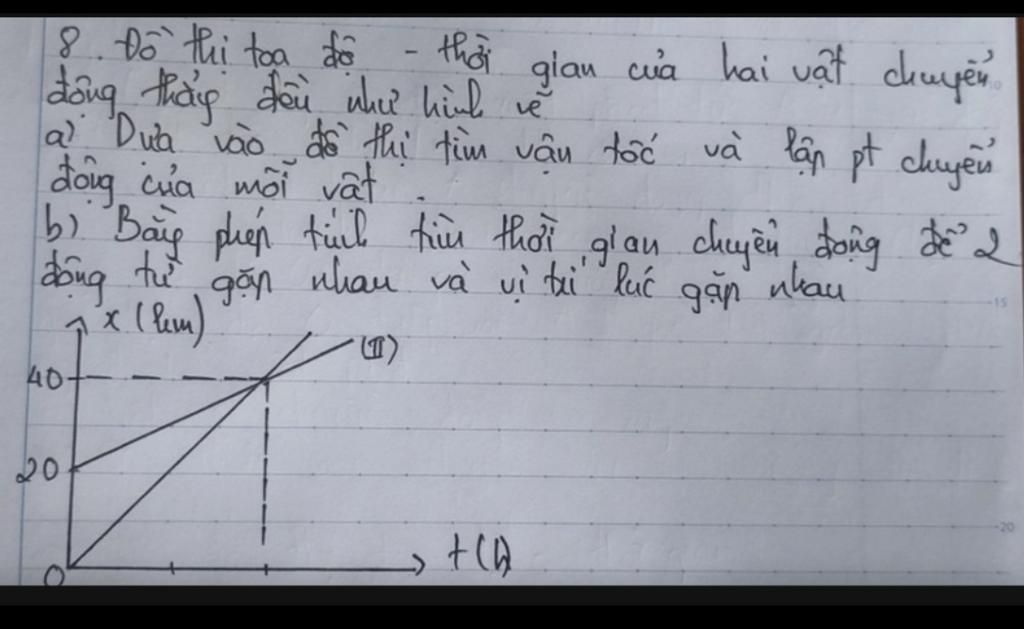 8. Đồ thị toạ độ - thời gian của hai vật chuyển
động thẳng đều như hình vẽ
a) Dựa vào đồ thị tìm vận tốc và lập pt chuyển
động của mỗi vật.
b) Bằng phép tính tìm thời gian chuyển động để 2
động tử gặp nhau và vị trí lúc gặp nhau
x (km)
(II)
40
20
0
t(h)
15
20